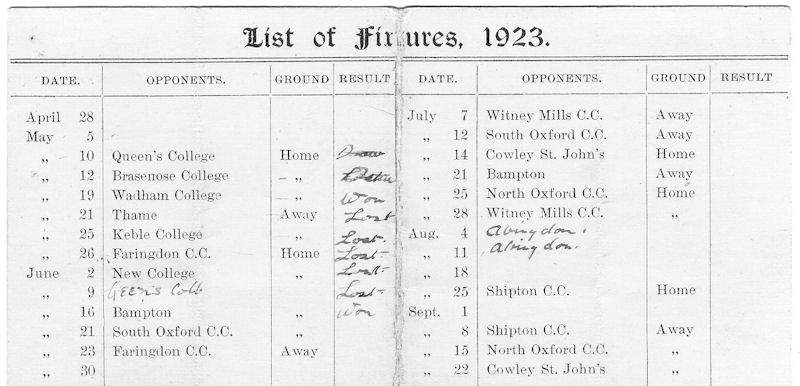 List of Fixtures, 1923.
DATE. OPPONENTS. GROUND RESULT DATE. OPPONENTS. GROUND RESULT
April 28
May 5
„ 10 Queen's College Home Draw
„ 12 Brasenose College – „
„ 19 Wadham College – „ Won
„ 21 Thame Away Lost
„ 25 Keble College „ Lost.
„ 26 Faringdon C.C. Home Lost
June 2 New College „ Lost
„ 9 Lost
„ 16 Bampton „ Won
„ 21 South Oxford C.C. „
„ 23 Faringdon C.C. Away
„ 30
July 7 Witney Mills C.C. Away
„ 12 South Oxford C.C. Away
„ 14 Cowley St. John's Home
„ 21 Bampton Away
„ 25 North Oxford C.C. Home
„ 28 Witney Mills C.C. „
Aug. 4 Abingdon.
„ 11 Abingdon.
„ 18
„ 25 Shipton C.C. Home
Sept. 1
„ 8 Shipton C.C. Away
„ 15 North Oxford C.C. „
„ 22 Cowley St. John's „